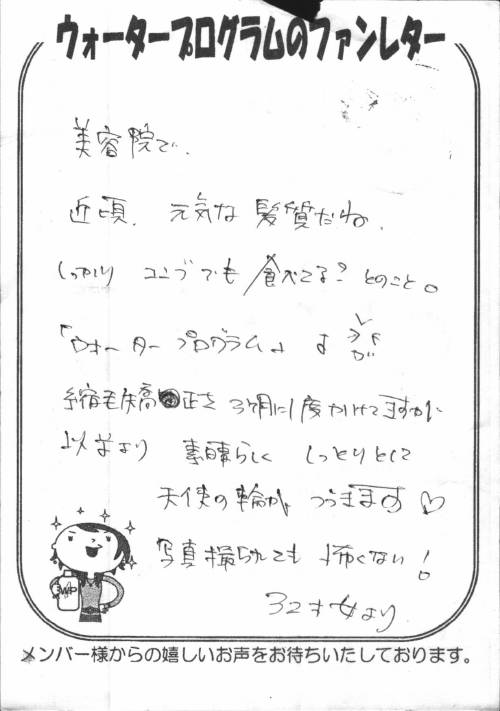 ウォータープログラムのファンレター
美容院で、
近頃、元気な髪質だね、
しっかり コンブでも 食べてる？ とのこと。
「ウォータープログラム」よ
縮毛矯正を 3ヶ月に1度かけてますが
以前より 素晴らしく しっとりとして
天使の輪が つづきます♡
写真撮られても 怖くない！
32才女より
WP
メンバー様からの嬉しいお声をお待ちいたしております。